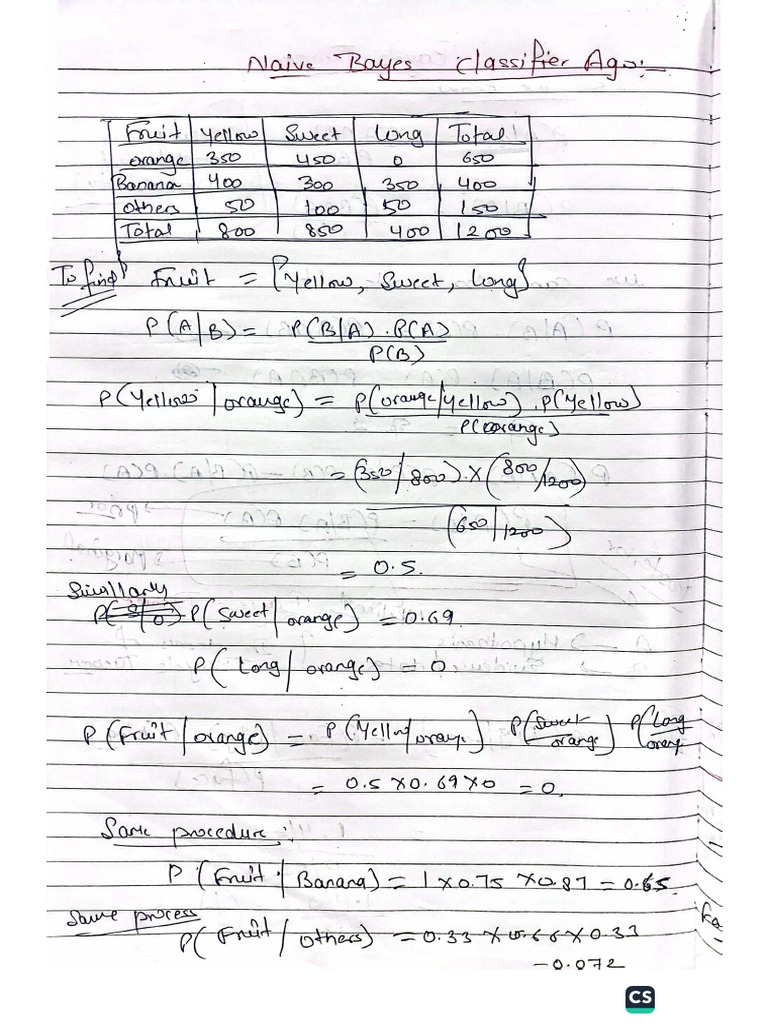 Naive Bayes Classifier Ago:-
Fruit Yellow Sweet Long Total
orange 350 450 0 650
Banana 400 300 350 400
others 50 100 50 150
Total 800 850 400 1200
To find Fruit = {Yellow, Sweet, Long}
P(A/B) = P(B/A) . P(A)
P(B)
P(Yellow / orange) = P(orange/Yellow) . P(Yellow)
P(orange)
= (350/800) . X (800/1200)
(650/1200)
= 0.5.
Similarly
P(Sweet/orange) = 0.69.
P(Long/orange) = 0
P(Fruit/orange) = P(Yellow/orange) P(Sweet/orange) P(Long/orange)
= 0.5 X 0.69 X 0 = 0.
Same procedure :
P(Fruit/Banana) = 1 X 0.75 X 0.87 = 0.65.
Same process
P(Fruit/Others) = 0.33 X 0.66 X 0.33
-0.072
CS